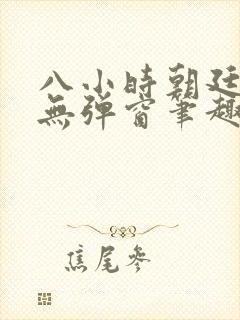 八小時朝廷
無彈窗筆趣
焦尾參